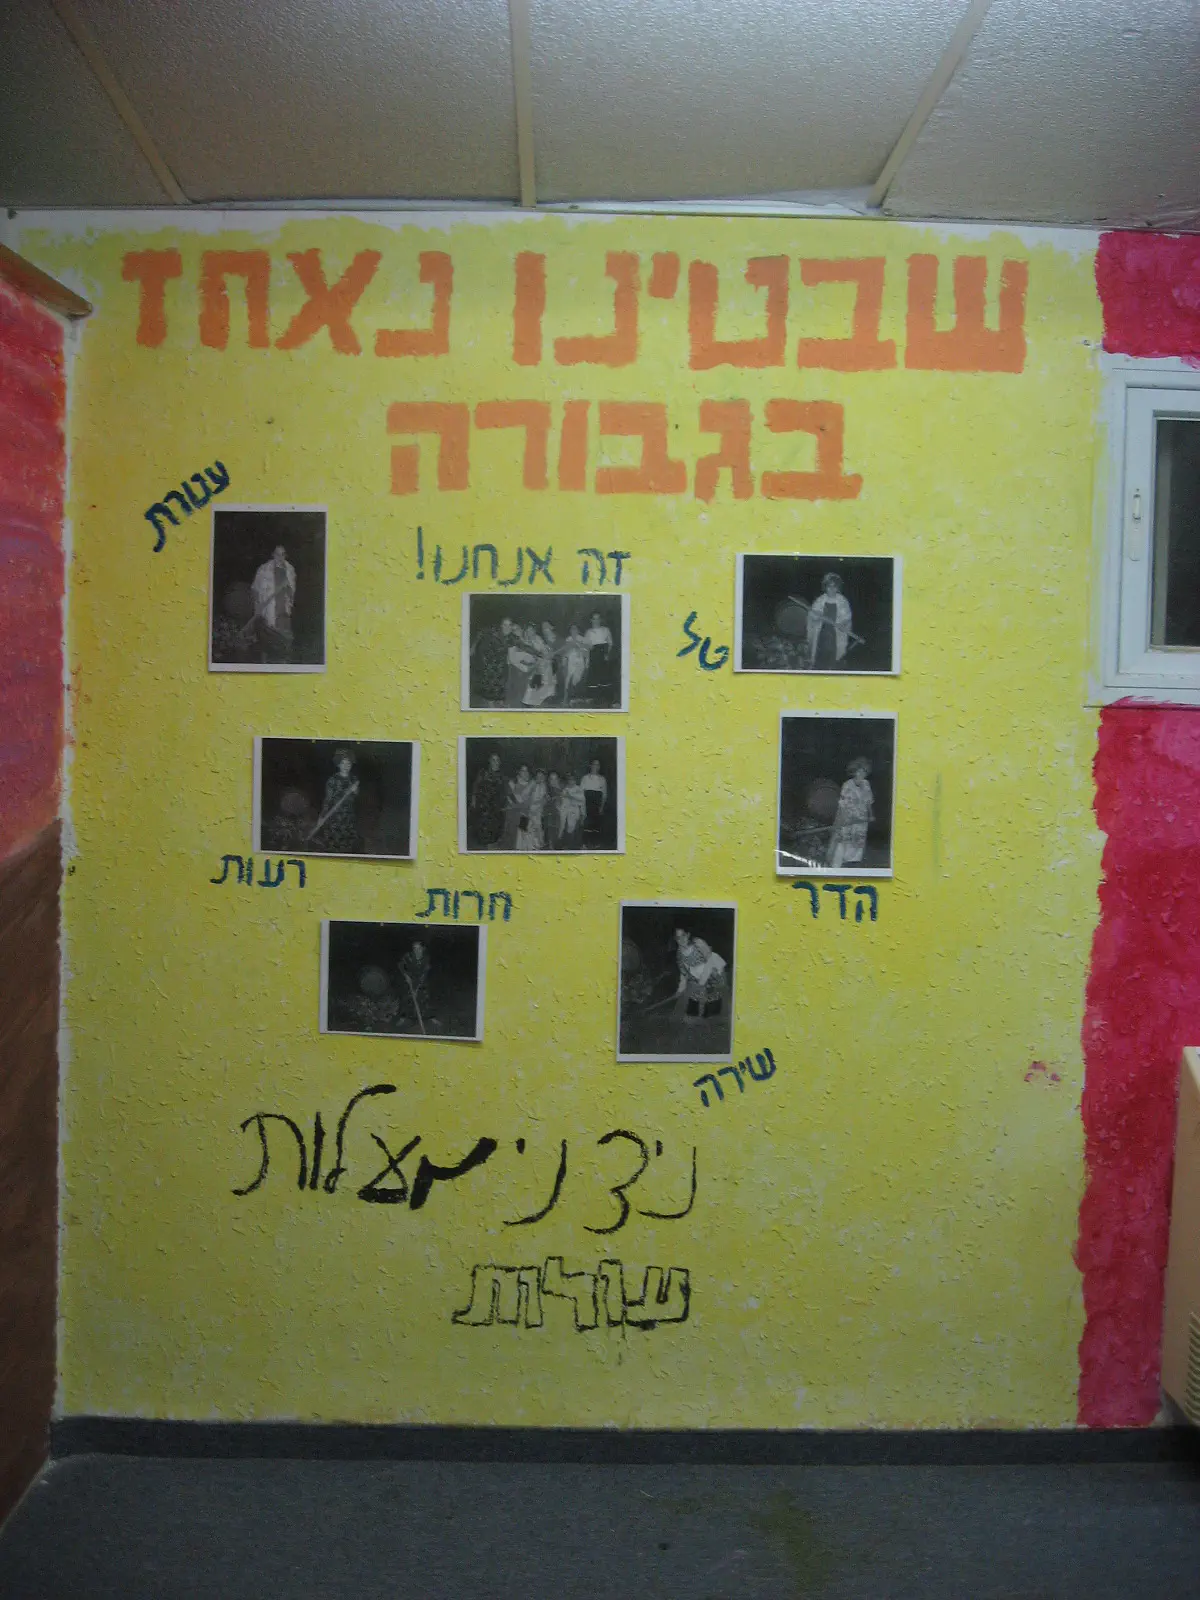 שבטינו נאחז
בגבורה
עטרת
זה אנחנו!
טל
רעות
חרות
הדר
שירה
ניצני מעלות
שורות